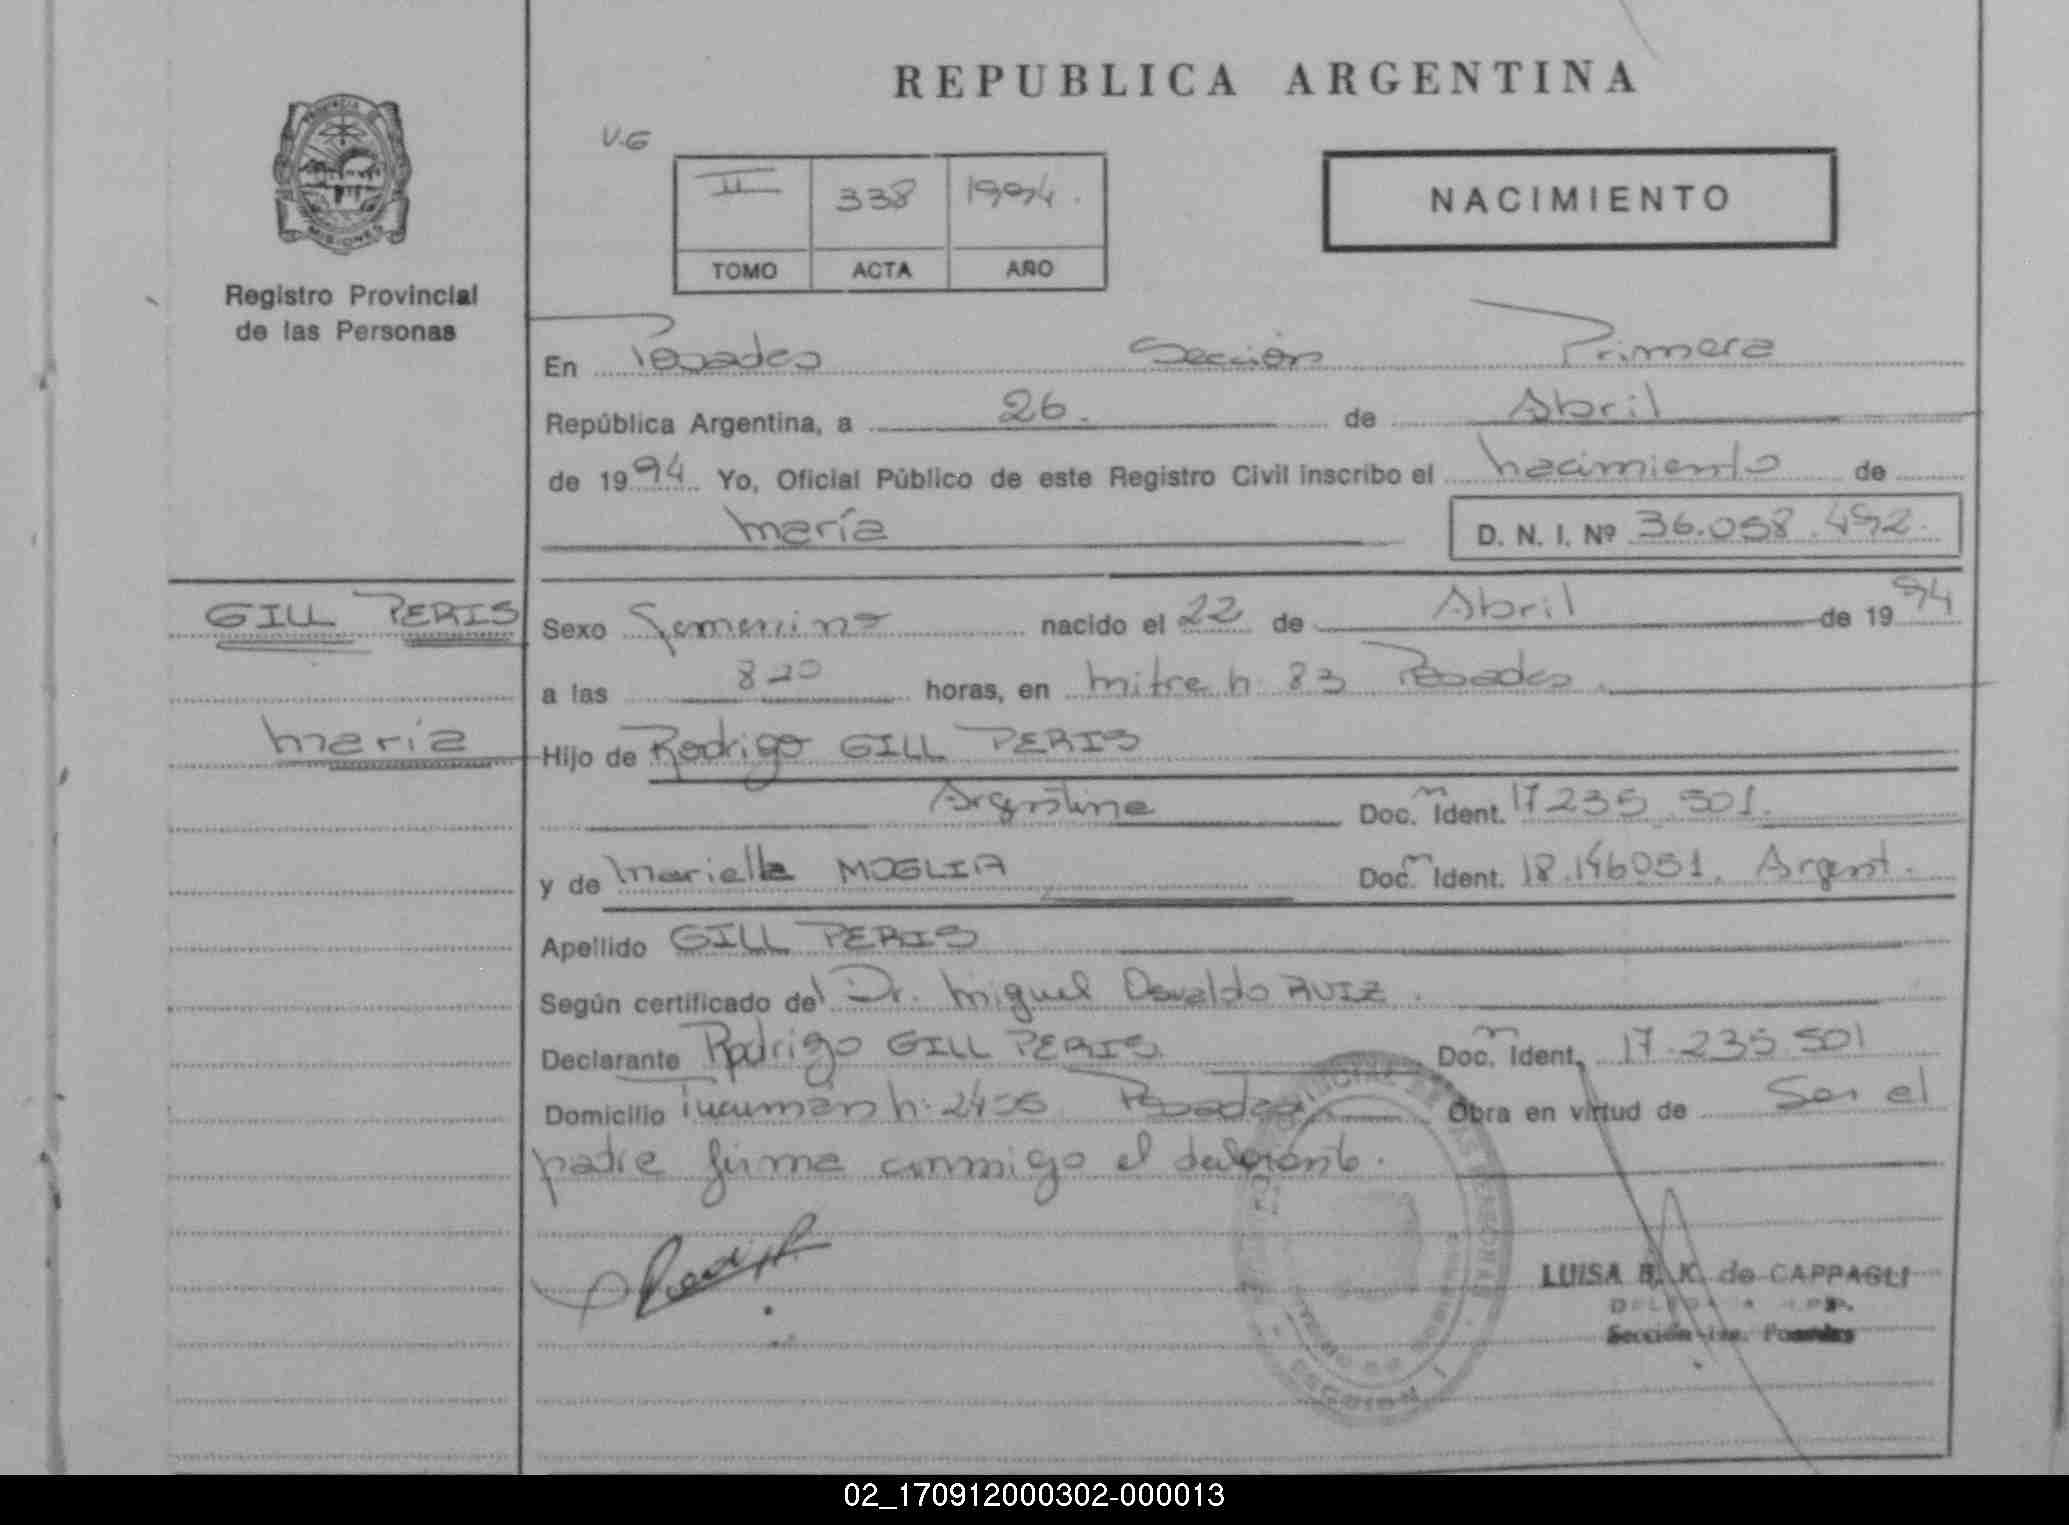 REPUBLICA ARGENTINA
V.G
II 338 1994.
TOMO ACTA AÑO
NACIMIENTO
PROVINCIA
MISIONES
Registro Provincial
de las Personas
En Posadas Sección Primera
República Argentina, a 26. de Abril
de 1994 Yo, Oficial Público de este Registro Civil inscribo el nacimiento de
María D. N. I. Nº 36.058.492.
GILL PERIS
María
Sexo Femenino nacido el 22 de Abril de 1994
a las 8 20 horas, en Mitre n: 83 Posadas.
Hijo de Rodrigo GILL PERIS
Argentina Doc. Ident. 17.235.501.
y de Mariella MOGLIA Doc. Ident. 18.146051. Argent.
Apellido GILL PERIS
Según certificado del Dr. Miguel Osvaldo RUIZ.
Declarante Rodrigo GILL PERIS. Doc. Ident. 17.235.501
Domicilio Tucumán n: Posadas Obra en virtud de Ser el
padre firma conmigo el declarante.
LUISA B. K. de CAPPAGLI
Sección 1ra. Posadas
02_170912000302-000013